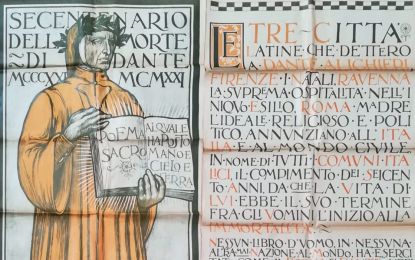 SECEN NARIO
DELL MORTE
DI DANTE
MCCCXXI MCMXXI
POEMA
SACRO
AL QVALE
HA POSTO
MANO E
CIELO E
TERRA
LE TRE·CITTÀ
LATINE·CHE·DETTERO
A·DANTE·ALIGHIERI
FIRENZE·I·NATALI, RAVENNA
LA·SVPREMA·OSPITALITÀ·NELL'
INIQVO·ESILIO, ROMA·MADRE
L'IDEALE·RELIGIOSO·E·POLI
TICO, ANNVNZIANO·ALL'ITA
LIA·E·AL·MONDO·CIVILE
IN·NOME·DI·TVTTI·I·COMVNI·ITA
LICI, IL·COMPIMENTO·DEI·SEICEN
TO·ANNI, DA·CHE·LA·VITA·DI
LVI·EBBE·IL·SVO·TERMINE
FRA·GLI·VOMINI·E·L'INIZIO·ALLA
IMMORTALITÀ·
NESSVN·LIBRO·D'VOMO, IN·NESSVNA
ALTRA·MAI·NAZIONE·AL·MONDO, HA·ESERCI